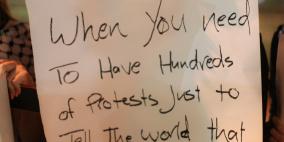 When You need
To Have Hundreds
of Protests Just to
Tell The world that